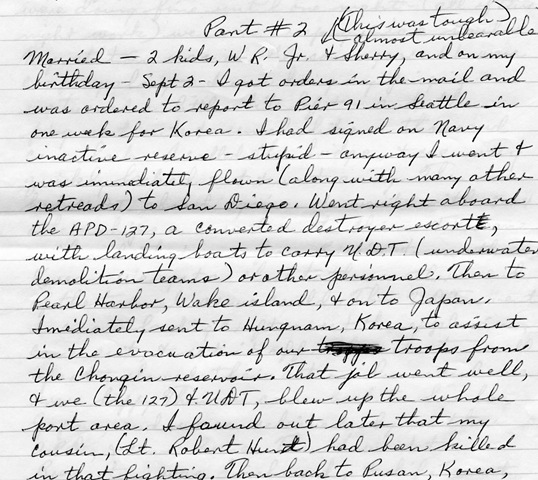 Part #2 (This was tough)
(almost unbearable
Married — 2 kids, W R. Jr. & Sherry, and on my
birthday - Sept 2 - I got orders in the mail and
was ordered to report to Pier 91 in Seattle in
one week for Korea. I had signed on Navy
inactive reserve - stupid - anyway I went &
was immidiately flown (along with many other
retreads) to San Diego. Went right aboard
the APD-127, a converted destroyer escort,
with landing boats to carry U.D.T. (underwater
demolition teams) or other personnel. Then to
Pearl Harbor, Wake island, & on to Japan.
Imidiately sent to Hungnam, Korea, to assist
in the evacuation of our troops from
the Chongin reservoir. That job went well,
& we (the 127) & UDT, blew up the whole
port area. I found out later that my
cousin, (Lt. Robert Hunt) had been killed
in that fighting. Then back to Pusan, Korea,